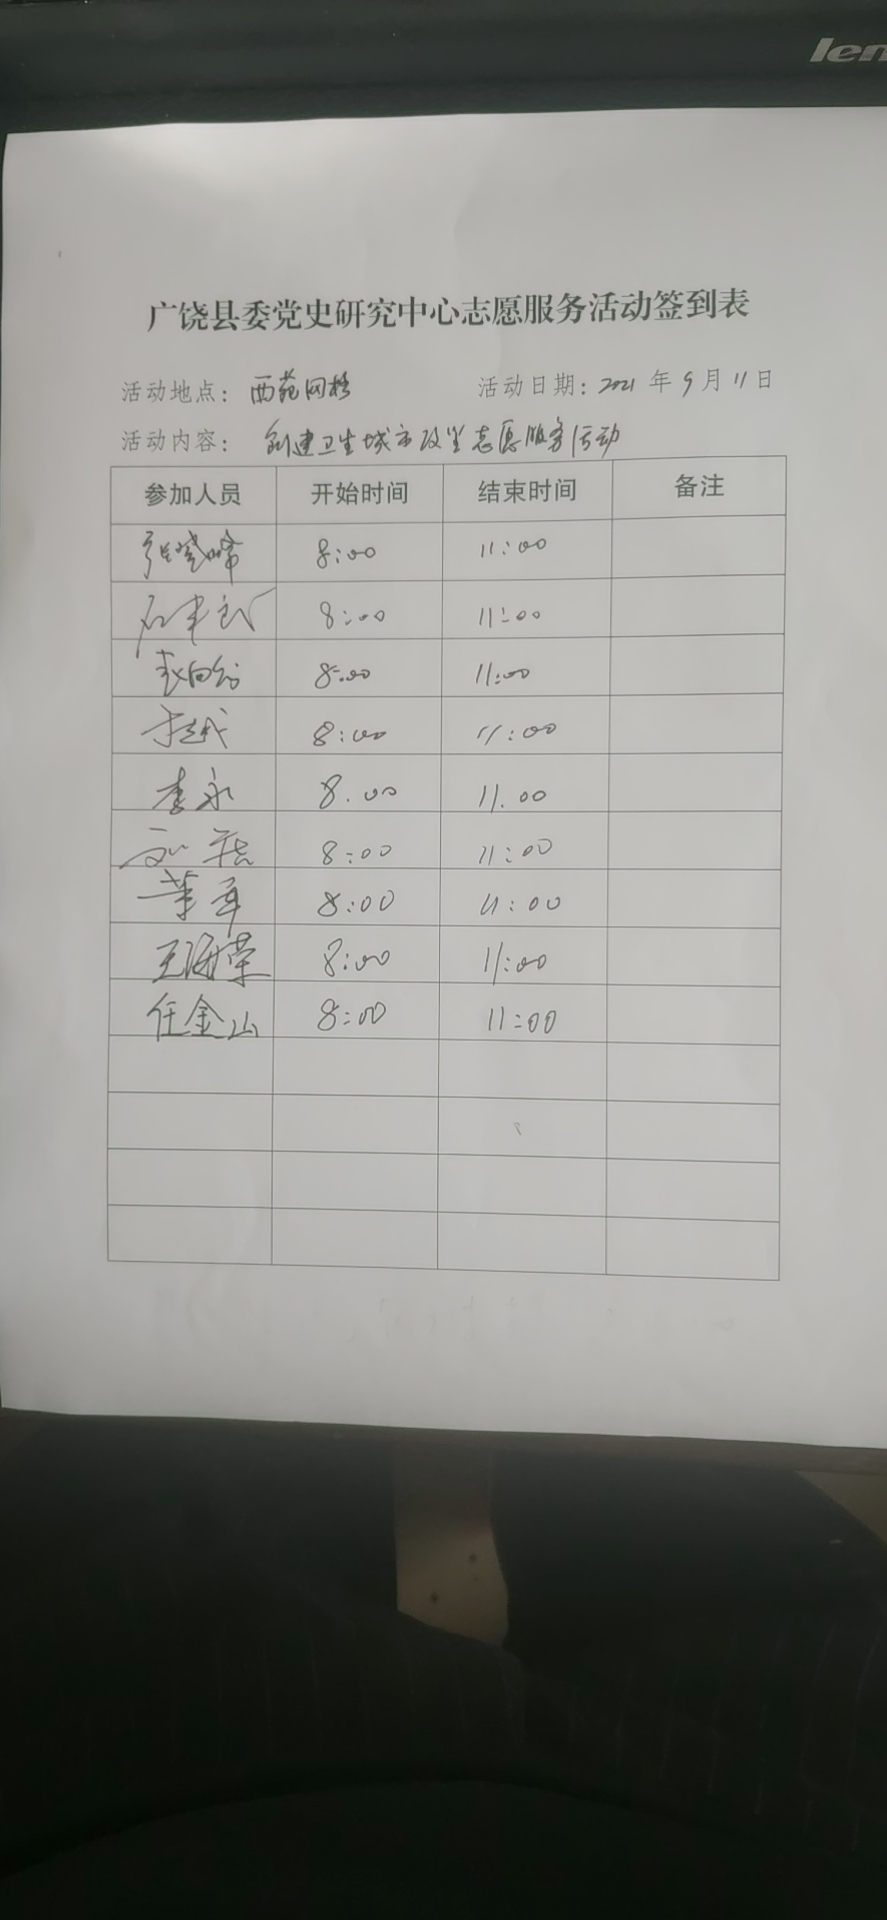 len
广饶县委党史研究中心志愿服务活动签到表
活动地点: 西苑网格 活动日期: 2021 年 9 月 11 日
活动内容: 创建卫生城市 志愿服务活动
参加人员 开始时间 结束时间 备注
张晓峰 8:00 11:00
8:00 11:00
8:00 11:00
于越 8:00 11:00
李永 8.00 11.00
8:00 11:00
8:00 11:00
王海荣 8:00 11:00
任金山 8:00 11:00